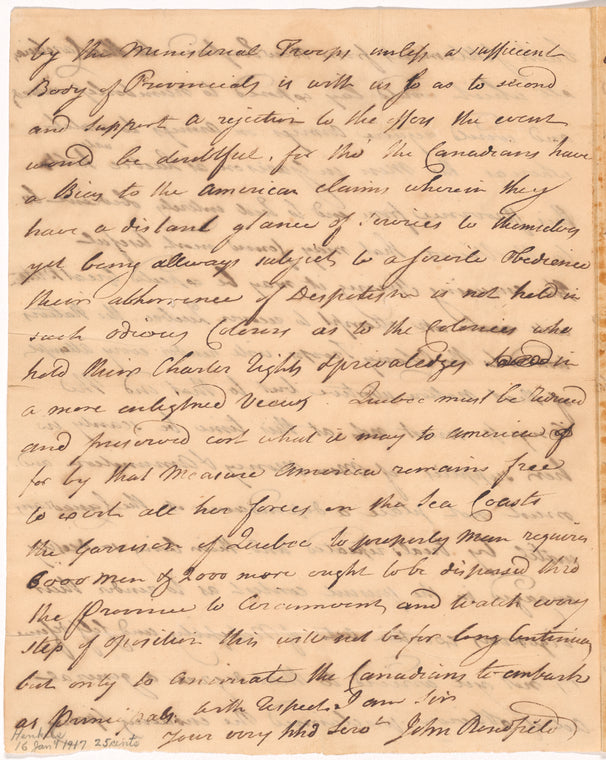 by the Ministerial Troops unless a sufficent
Body of Provincials is with us so as to second
and support a rejection to the offers the event
would be doubtful, for tho' the Canadians have
a Bias to the American claims wherein they
have a distant glance of Services to themselves
yet being allways subject to a servile Obedience
their abhorrence of Despotism is not held in
such odious Colours as to the Colonies who
hold their Charter rights & privaledges in
a more enlightned Veiw. Quebec must be reduced
and preserved cost what it may to america
for by that Measure America remains free
to exert all her forces on the Sea Coasts
the Garrison of Quebec to properly Man requires
6000 Men & 2000 more ought to be dispersed thro
the Province to Circumvent and watch every
step of oposition this will not be for long Continuance
but only to the Canadians to embark
as
with respect I am Sir
Your very hbl Servt John
16 Jan 1917 25 cents